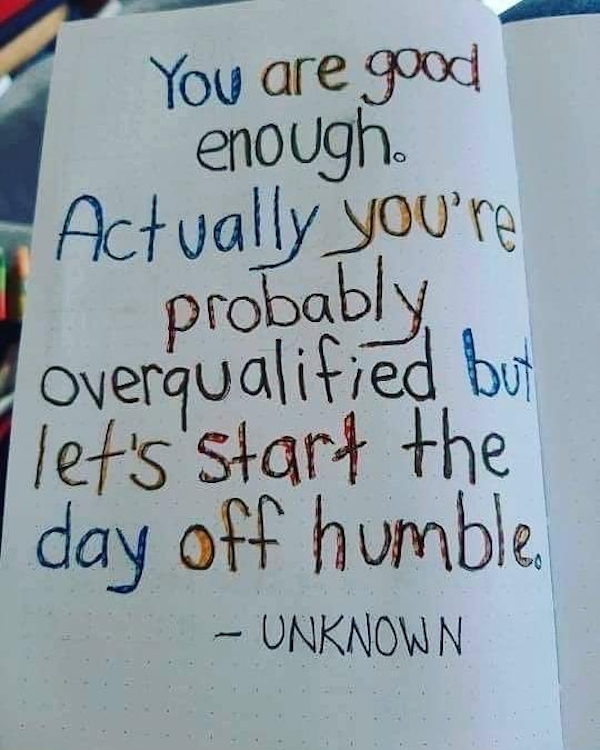 You are good
enough.
Actually you're
probably
overqualified but
let's start the
day off humble.
- UNKNOWN